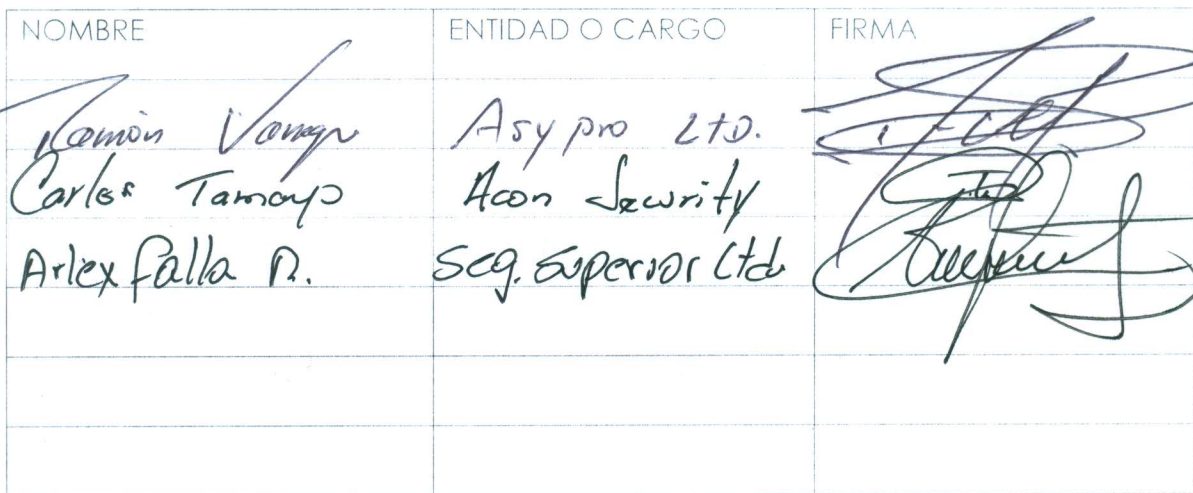 NOMBRE ENTIDAD O CARGO FIRMA
Ramón Asypro Ltd.
Carlos Tamayo Acon Security
Arlex Falla R. Seg. Superior Ltda